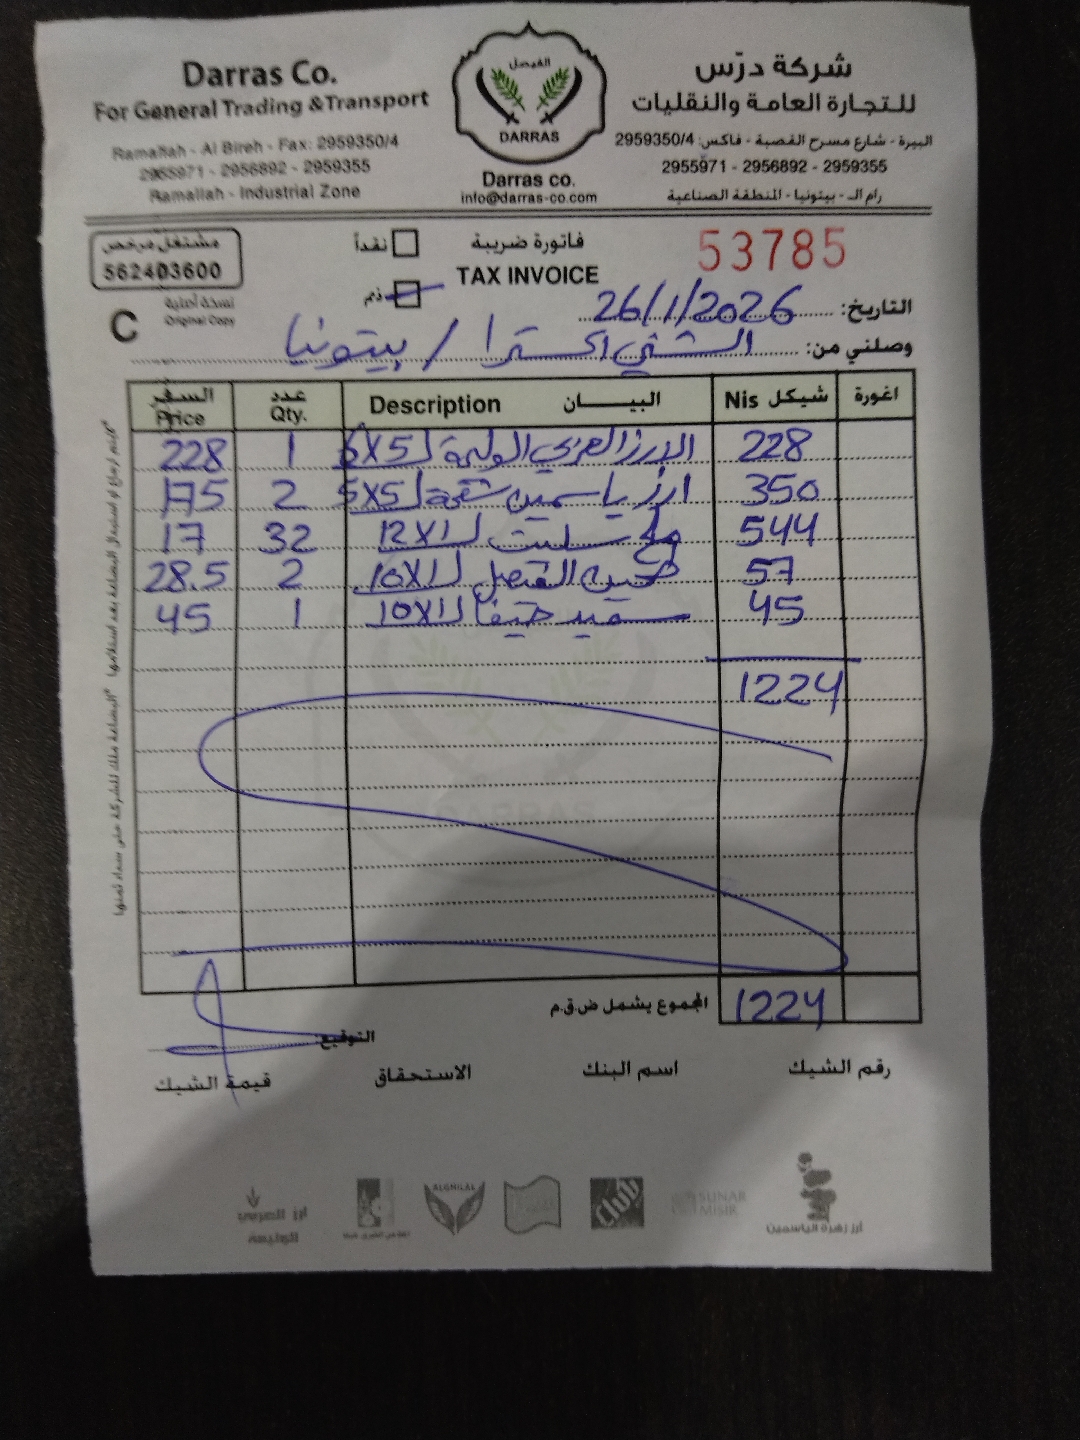 Darras Co.
For General Trading &Transport
Ramallah - Al Bireh - Fax: 2959350/4
2955971 - 2956892 - 2959355
Ramallah - Industrial Zone
الفيصل
DARRAS
Darras co.
info@darras-co.com
شركة درّس
للتجارة العامة والنقليات
البيرة - شارع مسرح القصبة - فاكس: 2959350/4
2955971 - 2956892 - 2959355
رام الله - بيتونيا - المنطقة الصناعية
مشتغل مرخص
562403600
نسخة أصلية
Original Copy
C
نقداً
ذمم
فاتورة ضريبة
TAX INVOICE
53785
التاريخ: 26/1/2026
وصلني من: الشني اكسترا / بيتونيا
السعر Price عدد Qty. Description البيــــان Nis شيكل اغورة
228 1 الارز العربي الوليمة 5X5ل 228
175 2 ارز ياسمين 5X5ل 350
17 32 ملح سلیت 12X1ل 544
28.5 2 طحين 10X1ل 57
45 1 سميد حيفا 10X1ل 45
1224
المجموع يشمل ض.ق.م 1224
التوقيع:
رقم الشيك اسم البنك الاستحقاق قيمة الشيك
ارز العربي
الوليمة
ALGHILAL
Club
SUNAR
MISIR
ارز زهرة الياسمين